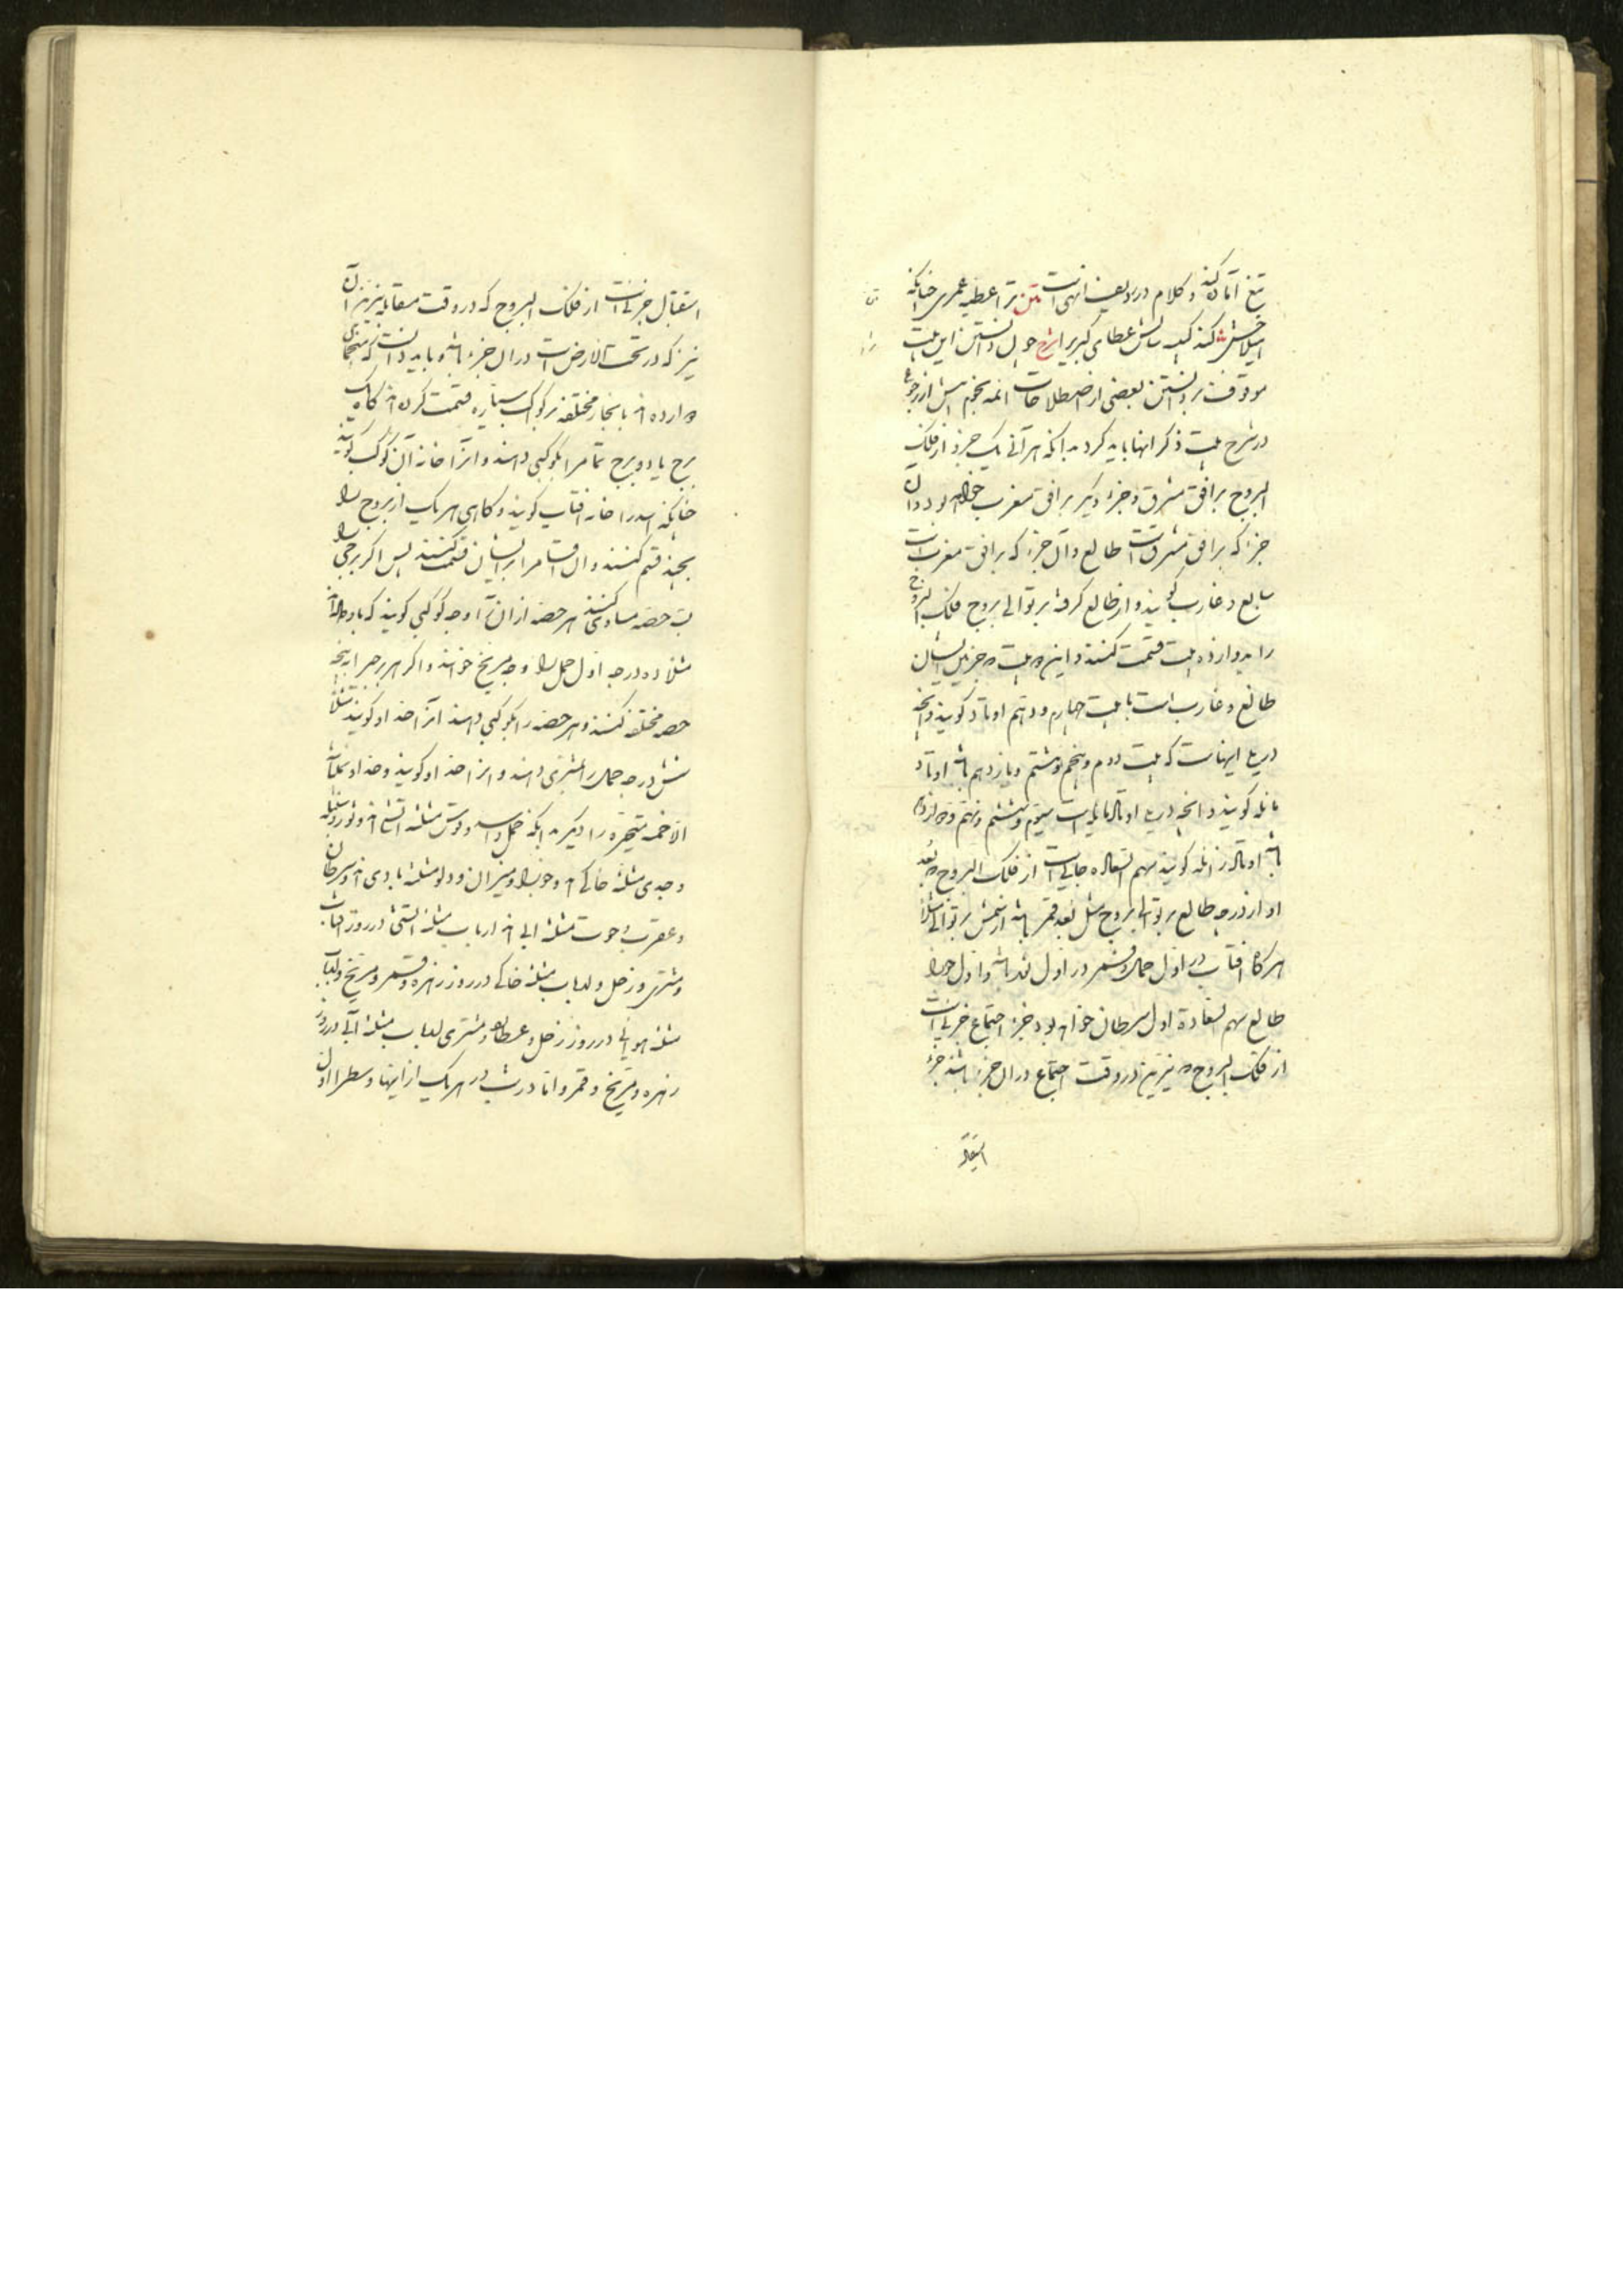 تیغ آماده کند و کلام در ردیف انهی است متن ترا عطیه عمری چنانکه
کند کبیسه سالش عطای کبری را شرح چون دانستن این بیت
موقوفست بر دانستن بعضی از اصطلاحات ائمه نجوم پیش از رجوع
در شرح بیت ذکر انها باید کرد بدانکه هر آنی یک جزء از فلک
البروج بر افق مشرق و جزء دیگر بر افق مغرب خواهد بود و آن
جزء که بر افق مشرق است طالع و آن جزء که بر افق مغرب است
سابع و غارب گویند و از طالع گرفته بر توالی بروج فلک البروج را
را بدوازده بیت قسمت کنند و این دو بیت که جزء اول ایشان
طالع و غارب است با بیت چهارم و دهم اوتاد گویند و آنچه
در پی اینهاست که بیت دوم و پنجم و هشتم و یازدهم باشد اوتاد
مائله گویند و آنچه در پی اوتاد مایله است سیوم و ششم و نهم و دوازدهم
باشد اوتاد زائله گویند سهم السعاده جایی است از فلک البروج که بعد
او از درجه طالع بر توالی بروج مثل بعد قمر باشد از شمس بر توالی مثلا
هرگاه افتاب در اول حمل و قمر در اول ثور باشد و اول جوزا
طالع سهم السعادة اول سرطان خواهد بود جزء اجتماع جزئی است
از فلک البروج که نیرین در وقت اجتماع در آن جزء باشند جزء
استقبال
استقبال جزئی است از فلک البروج که در وقت مقابله نیرین آن
نیر که در تحت الارض است در آن جزء باشد و باید دانست که منجمان
دوازده را بانحاء مختلفه بر کواکب سیاره قسمت کرده اند گاه یک
برج یا دو برج تمام را بکوکبی دهند و آنرا خانه آن کوکب گویند
چنانکه اسد را خانه افتاب گویند و گاهی هر یک از بروج را
بچند قسم کنند و آن اقسام را بر ایشان قسمت کنند پس اگر برجی
بسه حصه مساوی کنند هر حصه از آن را وجه کوکبی گویند که باو داده اند
مثلا ده درجه اول حمل را وجه مریخ خوانند و اگر هر برج را به پنج
حصه مختلفه کنند و هر حصه را بکوکبی دهند آنرا حد او گویند مثلا
شش درجه حمل را بمشتری دهند و آنرا حد او گویند و حد او نباشد
الا خمسه متحیره را دیگر بدانکه حمل و اسد و قوس مثلثه آتشی اند و ثور و سنبله
و جدی مثلثه خاکی اند و جوزا و میزان و دلو مثلثه بادی اند و سرطان
و عقرب و حوت مثلثه آبی اند ارباب مثلثه آتشی در روز آفتاب
و مشتری و زحل و ارباب مثلثه خاکی در روز زهره و قمر و مریخ و ارباب
مثلثه هوائی در روز زحل و عطارد و مشتری ارباب مثلثه آبی در روز
زهره و مریخ و قمر و اما در شب در هر یک از اینها وسط را اول